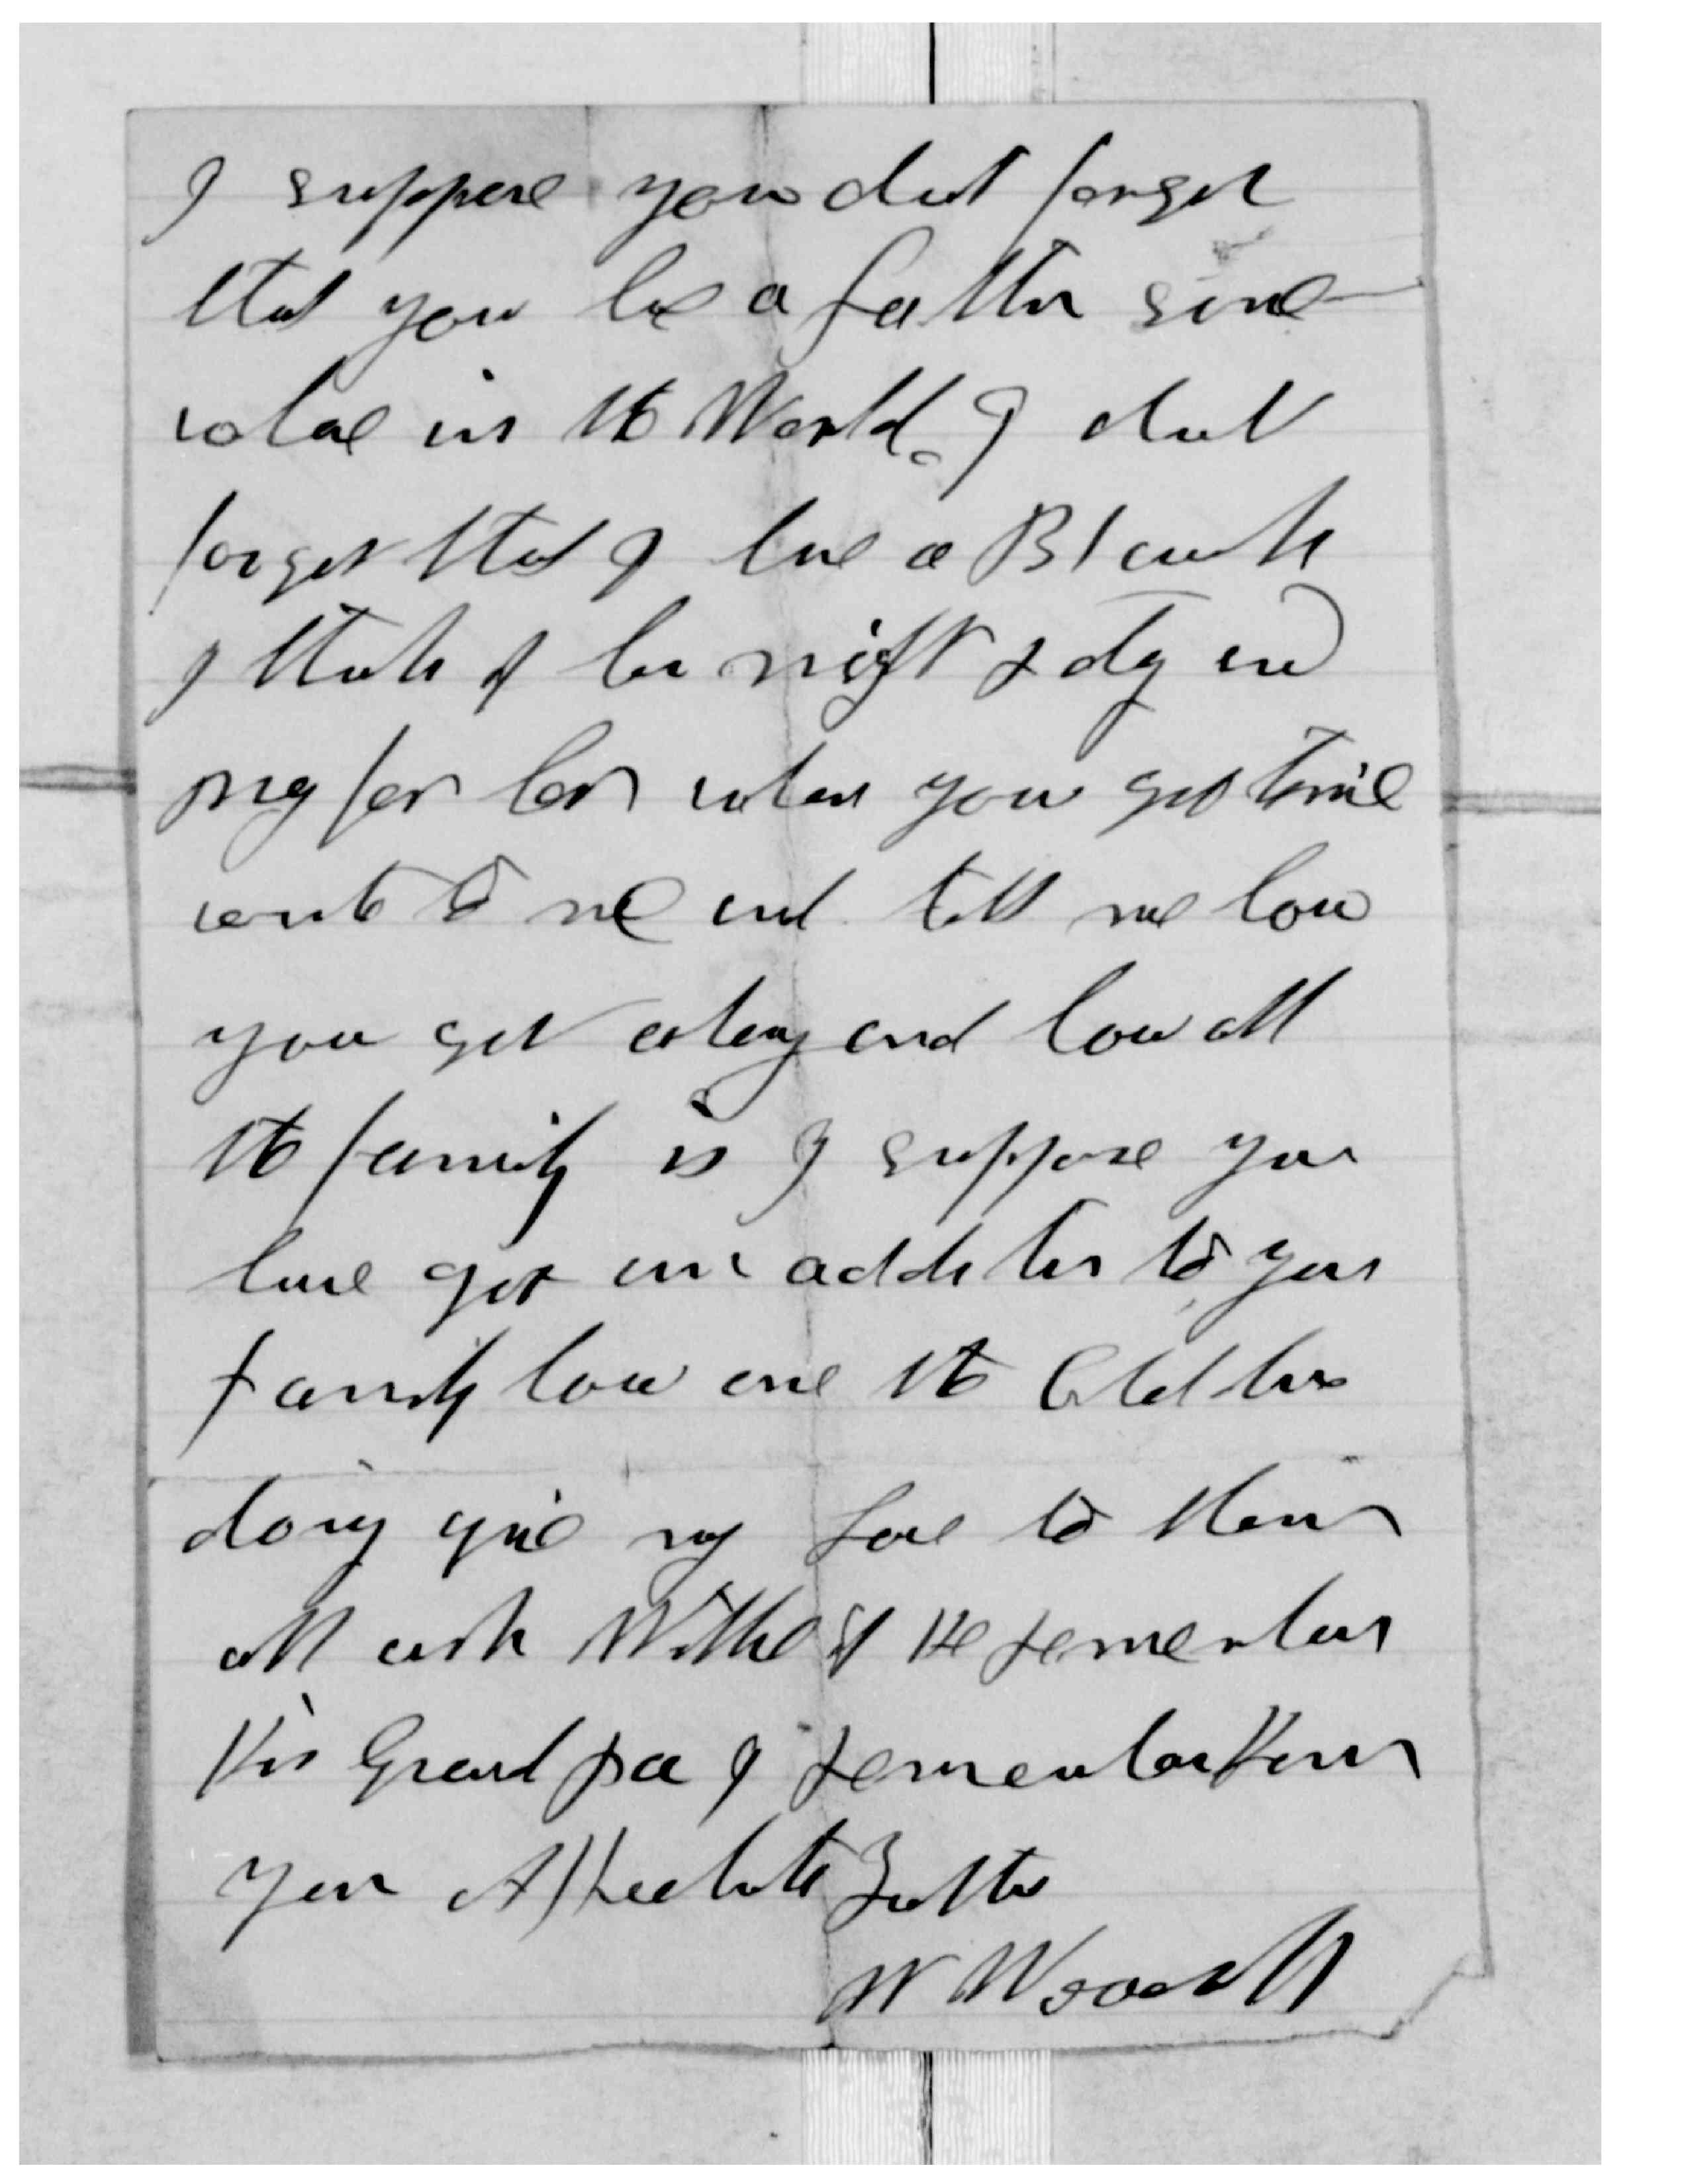 I suppose you dut forget
that you hae a father some
whae in the World. I dut
forget that I hae a
I think of her night & dy and
pray for her when you get time
write to me and tell me how
you get along and how all
the family is I suppose you
have got an addition to your
family how are the Children
doing give my Love to them
all ask Willie if He remembers
His Grand pa I remember Him
Your Affectionate Father
W